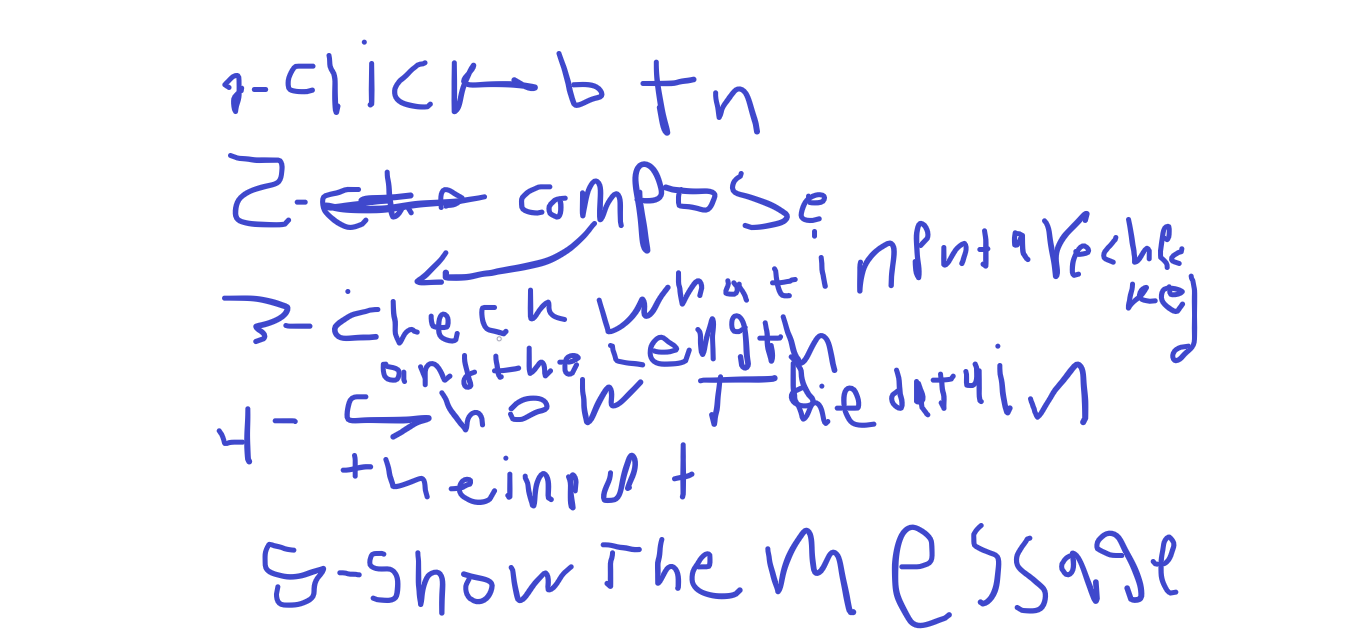 1-click btn
2- compose
3-check what input are checke
key
on the Length
4- show The data in
the input
5-show The message